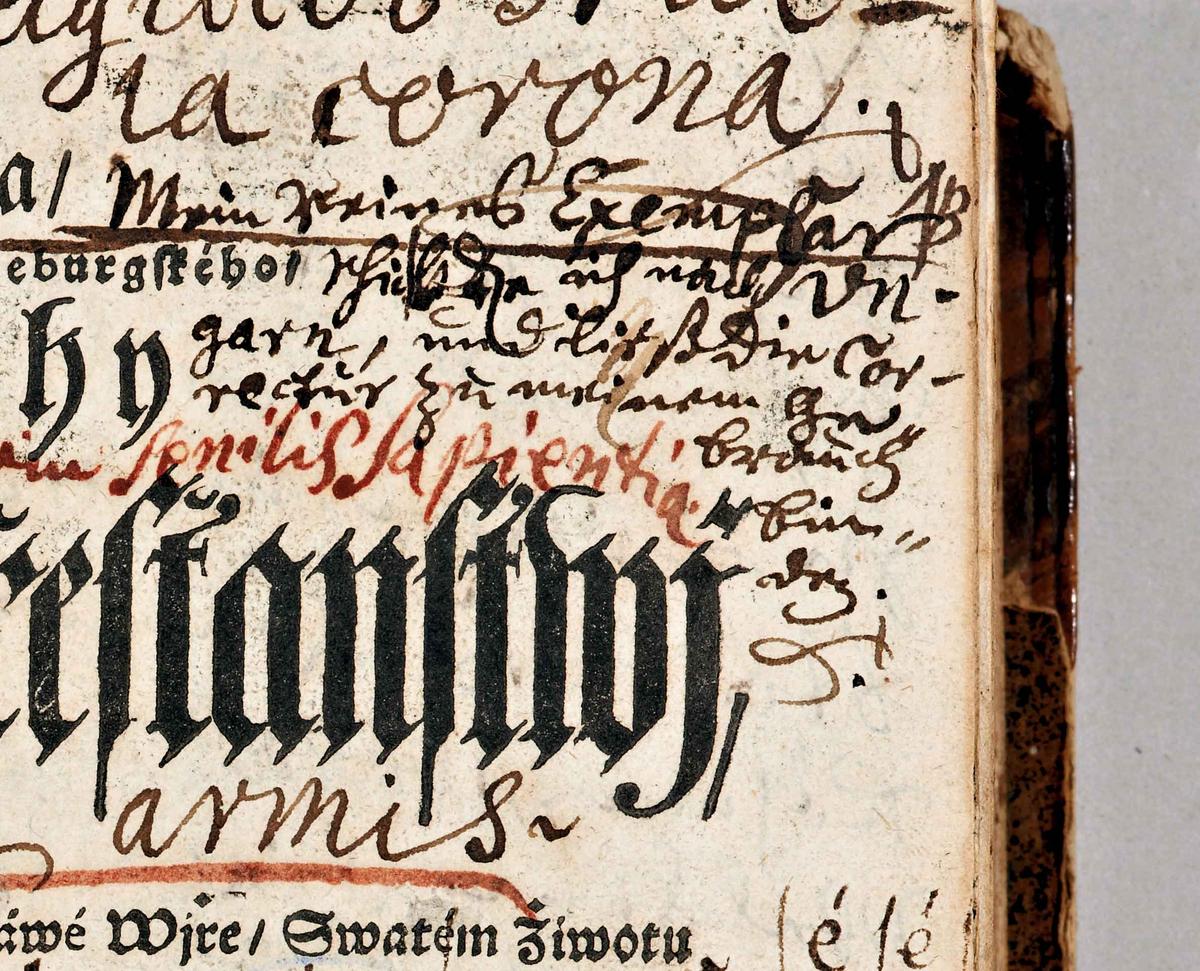 la corona.
a/ Mein Reines Exemplar
eburgſkého/ schickte ich nach Vn-
garn, und ließ die Cor-
hy rectur zu meinem Ge-
brauch
senilis sapientia.
bin-
eſťanſtwj/
den.
armis.
áwé Wjře/ Swatém Žiwotu